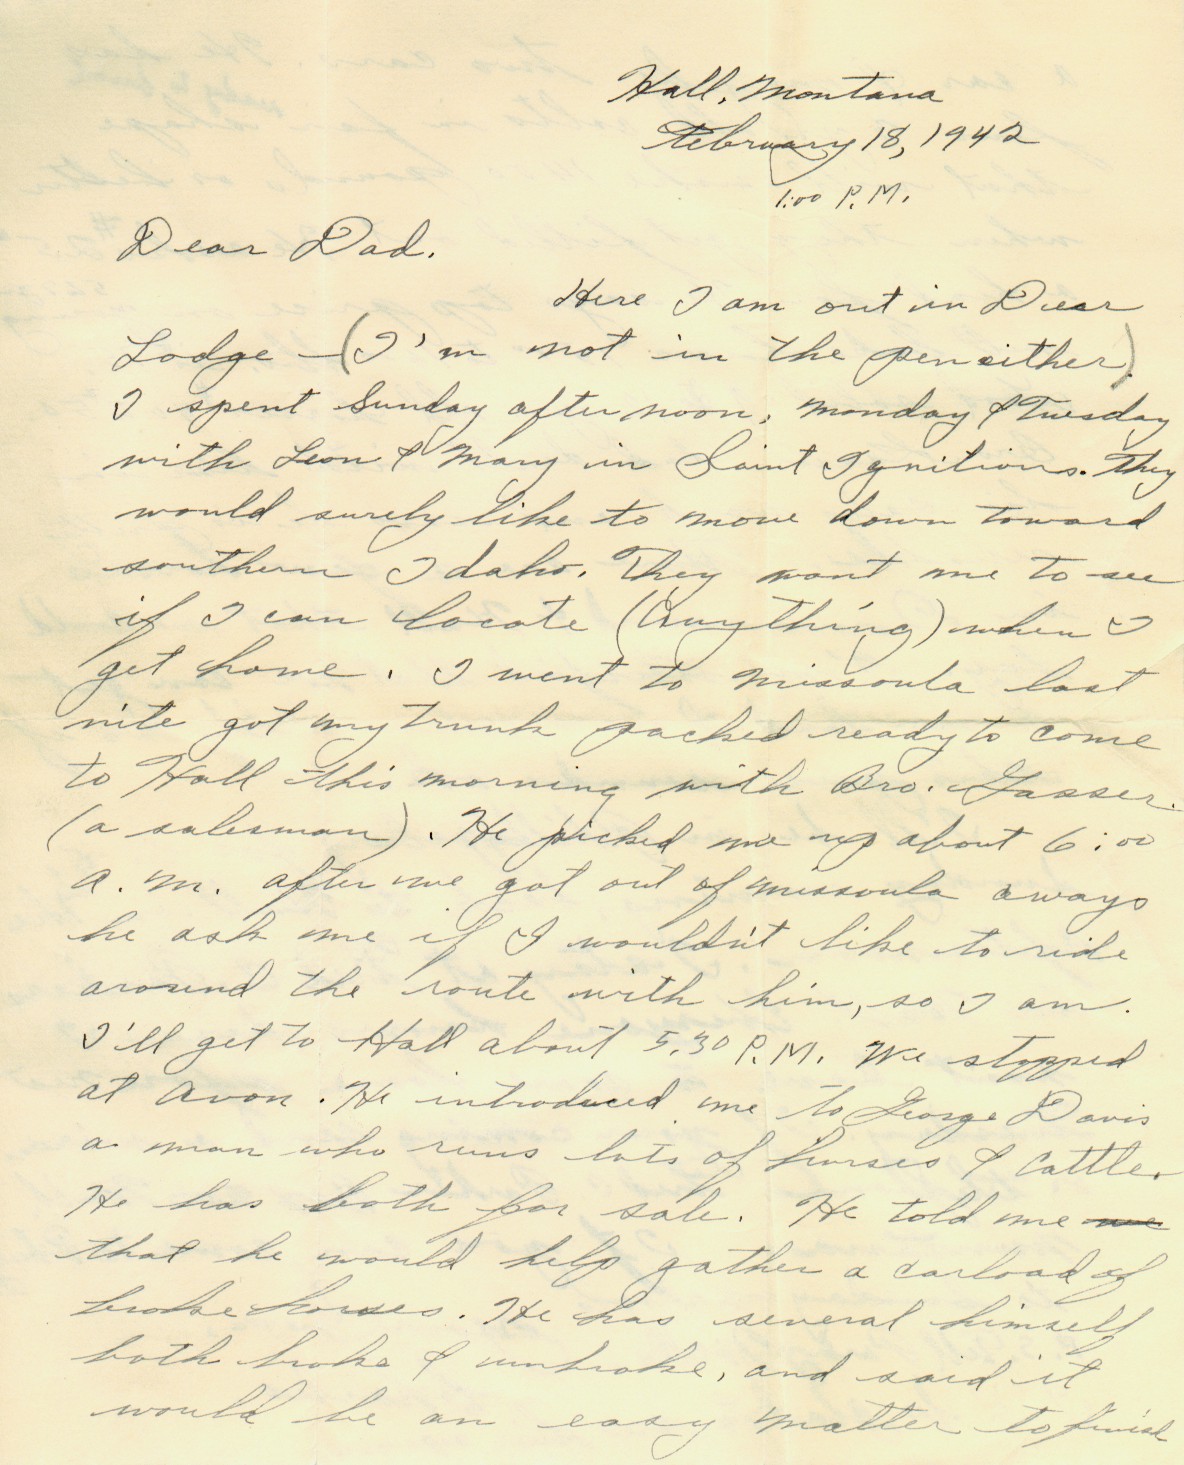 Hall, Montana
February 18, 1942
1:00 P.M.
Dear Dad.
Here I am out in Deer
Lodge - (I'm not in the pen either)
I spent Sunday after noon, Monday & Tuesday
with Leon & Mary in Saint Ignitious. They
would surely like to move down toward
southern Idaho. They want me to see
if I can locate (anything) when I
get home. I went to Missoula last
nite got my trunk packed ready to come
to Hall this morning with Bro. Gasser.
(a salesman). He picked me up about 6:00
a.m. after we got out of Missoula aways
he ask me if I wouldn't like to ride
around the route with him, so I am.
I'll get to Hall about 5:30 P.M. We stopped
at Avon. He introduced me to George Davis
a man who runs lots of horses & cattle.
He has both for sale. He told me we
that he would help gather a carload of
broke horses. He has several himself
both broke & unbroke, and said it
would be an easy matter to finish